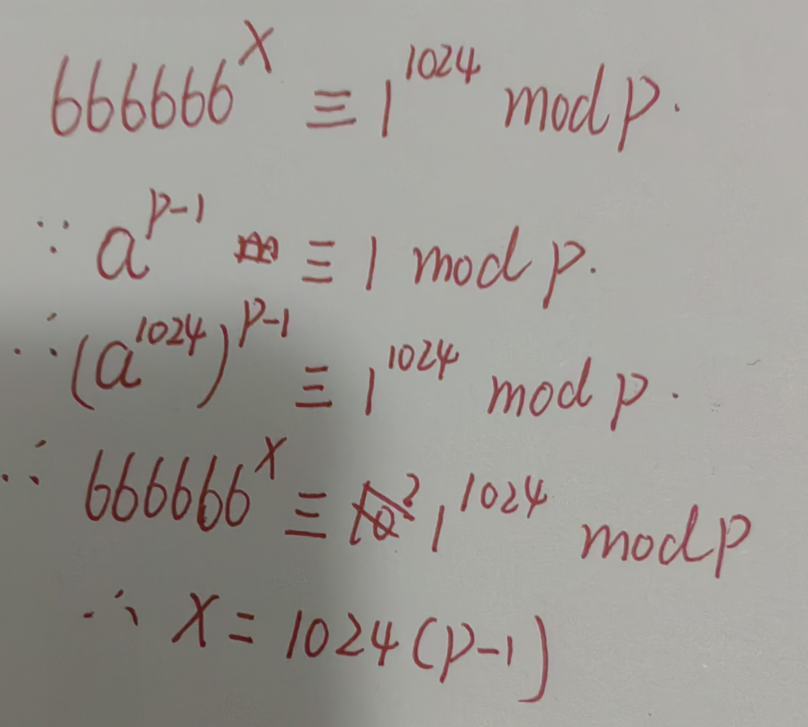 666666^x ≡ 1^1024 mod p.
∵ a^p-1 ≡ 1 mod p.
∴ (a^1024)^p-1 ≡ 1^1024 mod p.
∴ 666666^x ≡ 1^1024 mod p
∴ x = 1024(p-1)